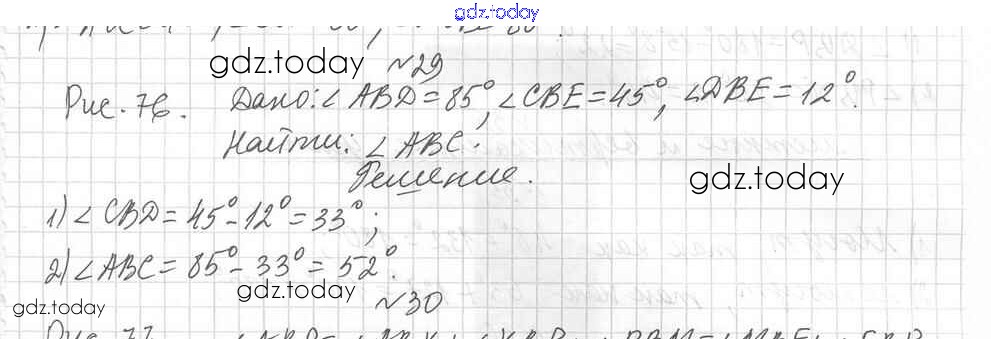 gdz.today
gdz.today №29
Рис. 76. Дано: ∠ABD = 85°, ∠CBE = 45°, ∠DBE = 12°.
Найти: ∠ABC.
Решение.
gdz.today
1) ∠CBD = 45° - 12° = 33°;
2) ∠ABC = 85° - 33° = 52°.
gdz.today gdz.today №30